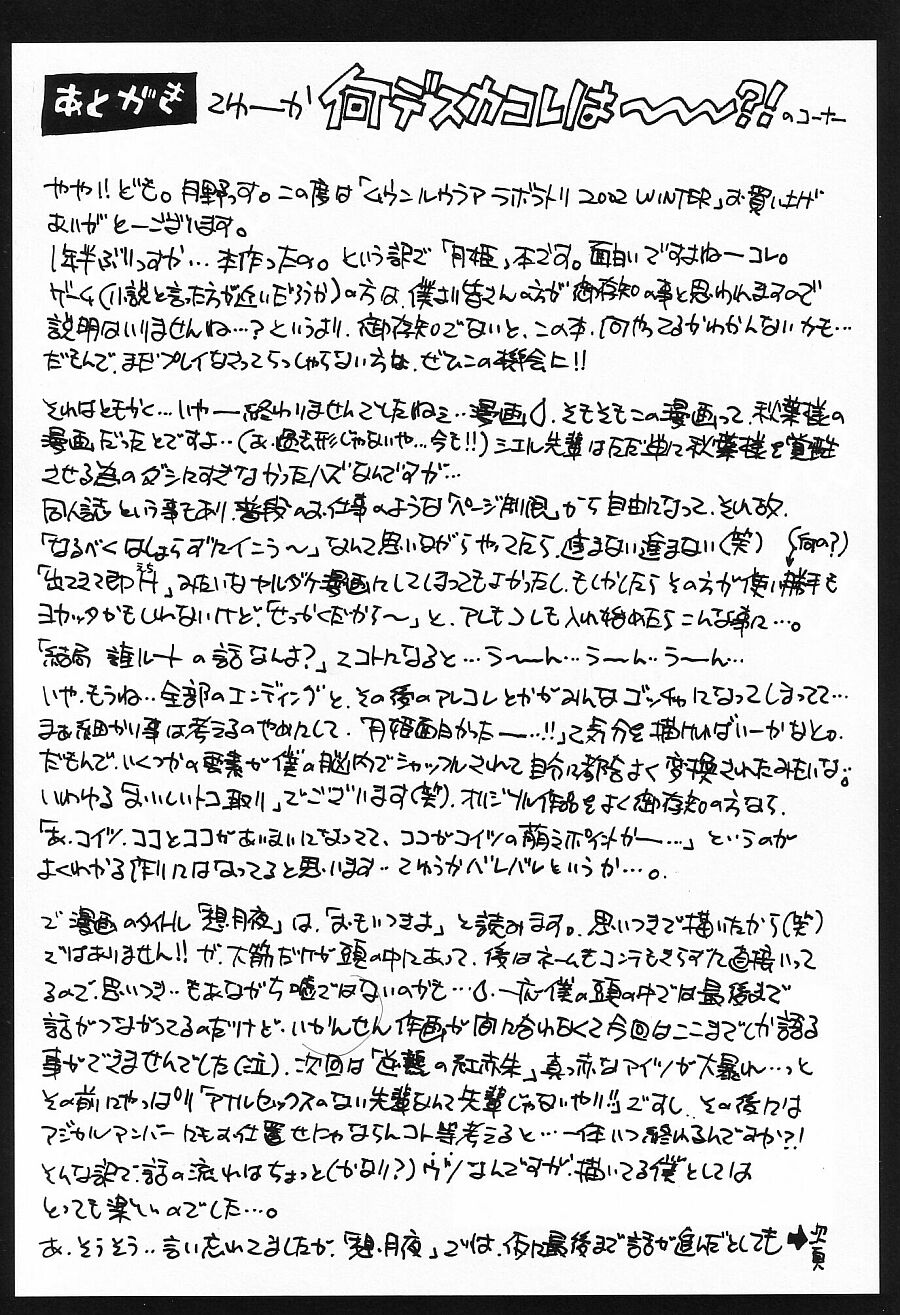 あとがき てゆーか 何デスカコレは〜〜〜?! のコーナー
やや!!ども。月野っす。この度は「ムウンルウラア ラボラトリ 2002 WINTER」お買い上げ
ありがとーございます。
1年半ぶりっすか…本作ったの。という訳で「月姫」本です。面白いですよねーコレ。
ゲーム(小説と言った方が近いだろうか)の方は、僕より皆さんの方が御存知の事と思われますので
説明はいりませんね…?というより、御存知でないと、この本、何やってるかわかんないかも…
だもんで、まだプレイなさってらっしゃらない方は、ぜひこの機会に!!
それはともかく…いやー終わりませんでしたねェ…漫画。そもそもこの漫画って、秋葉様の
漫画だったとですよ…(あ、過去形じゃないや…今も!!)シエル先輩はただ単に秋葉様を覚醒
させる為のダシにすぎなかったハズなんですが…
同人誌という事もあり、普段のお仕事のような「ページ制限」から自由になって、それ故、
「なるべくはしょらずにイこう〜」なんて思いながらやってたら、進まない進まない(笑) (何の?)
「出てきて即」みたいなヤルダケ漫画にしてしまってもよかったし、もしかしたらその方が使い勝手も
ヨカッタかもしれないけど、「せっかくだから〜」と、アレもコレも入れ始めたらこんな事に…。
「結局 誰ルートの話なんよ?」てコトになると…う〜〜ん…う〜ん…う〜ん…
いや、もうね…全部のエンディングと、その後のアレコレとかがみんなゴッチャになってしまってて…
まぁ細かい事は考えるのやめにして、「月姫面白かったー…!!」って気分を描ければいーかなと。
だもんで、いくつかの要素が僕の脳内でシャッフルされて自分に都合よく変換されたみたいな。
いわゆる「おいしいトコ取り」でございます(笑)。オリジナル作品をよく御存知の方なら、
「あ、コイツ、ココとココがあいまいになってて、ココがコイツの萌えポイントかー…」というのが
よくわかる作りにはなってると思います…てゆうかバレバレというか…。
で、漫画のタイトル「想月夜」は、「おもいつきよ」と読みます。思いつきで描いたから(笑)
ではありません!!が、大筋だけが頭の中にあって、後はネームもコンテもきらずに直接いって
るので、思いつき…もあながち嘘ではないのかも…。一応僕の頭の中では最後まで
話がつながってるのだけど、いかんせん作画が間に合わなくて今回はここまでしか語る
事ができませんでした(泣)。次回は「逆襲の紅赤朱」真っ赤なアイツが大暴れ…っと
その前にやっぱり「アナルセックスのない先輩なんて先輩じゃないやい!!」ですし、その後には
マジカルアンバーにもお仕置せにゃならんコト等考えると…一体いつ終わるんですか?!
そんな訳で、話の流れはちょっと(かなり?)ウツなんですが、描いてる僕としては
とっても楽しいのでした…。
あ、そうそう…言い忘れてましたが、「想月夜」では、仮に最後まで話が進んだとしても ➡次頁